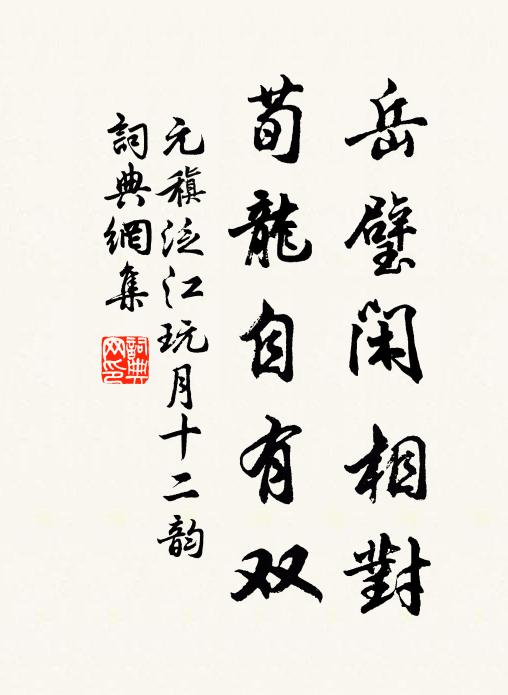 岳璧閑相對
荀龍自有双
元稹泛江玩月十二韵
詞典網集
詞典網印